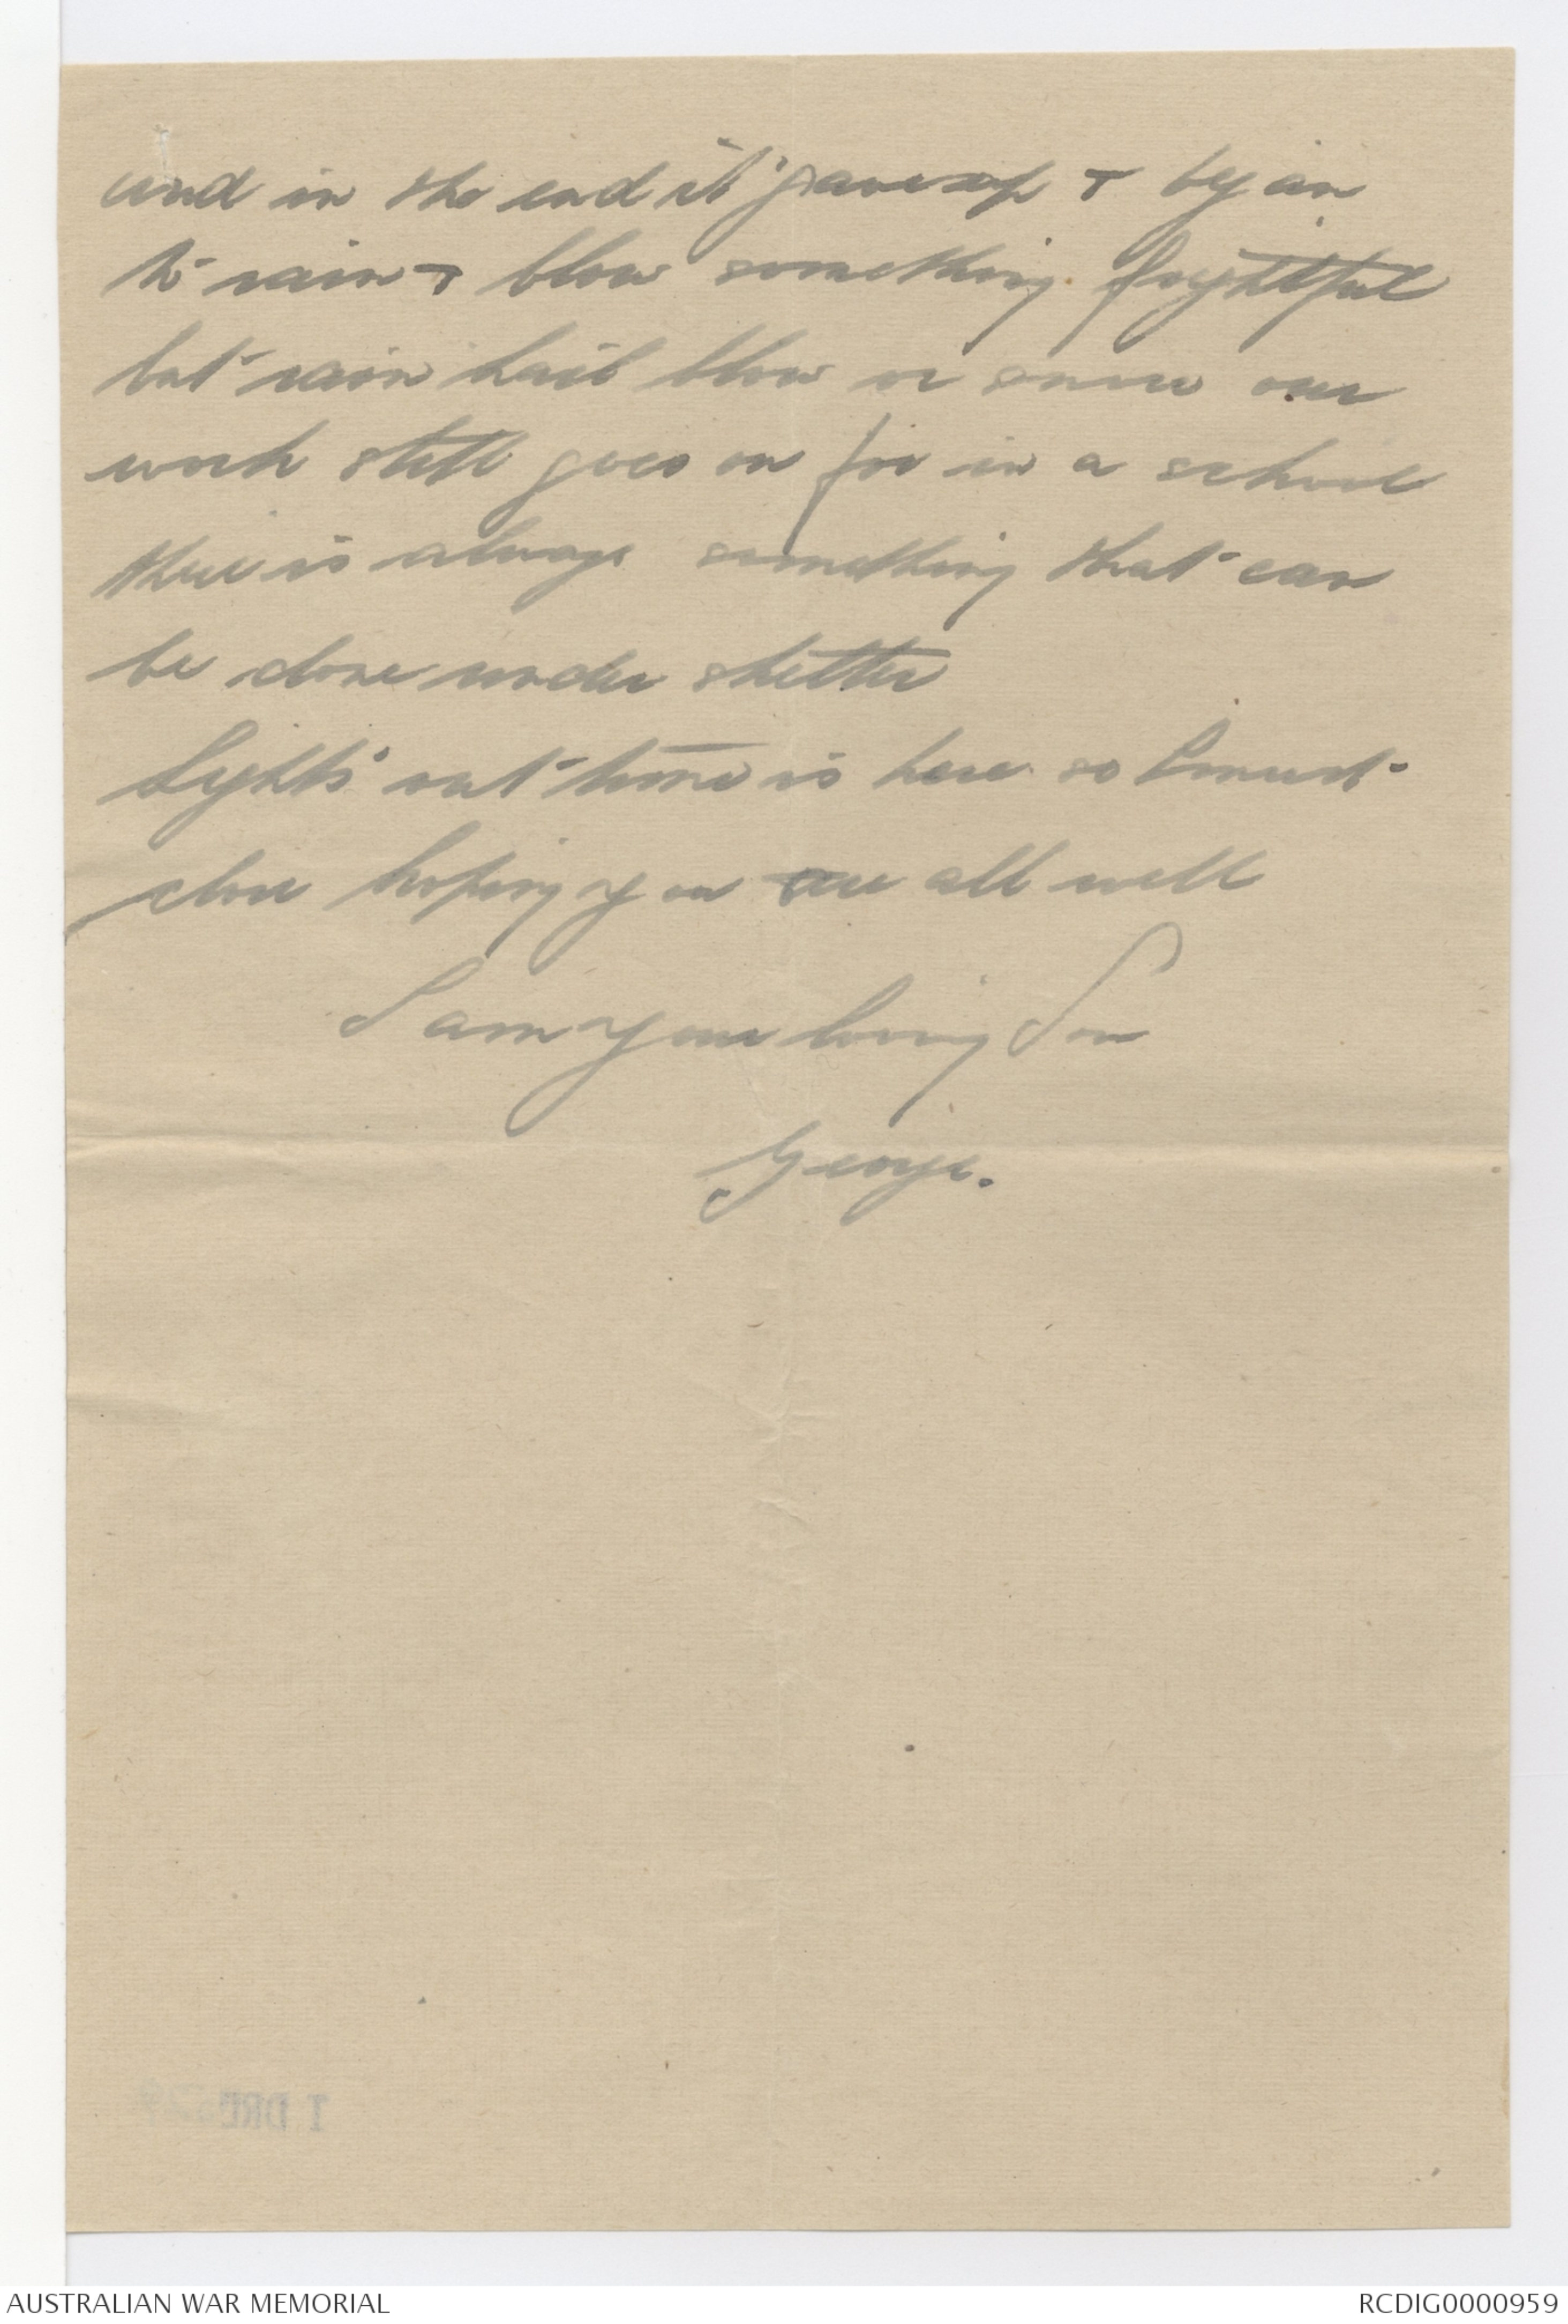 and in the end it gave up & began
to rain & blow something frightful
but rain hail blow or snow our
work still goes on for in a school
there is always something that can
be done under shelter
Lights out time is here so I must
close hoping you are all well
I am your loving Son
George.
AUSTRALIAN WAR MEMORIAL
RCDIG0000959